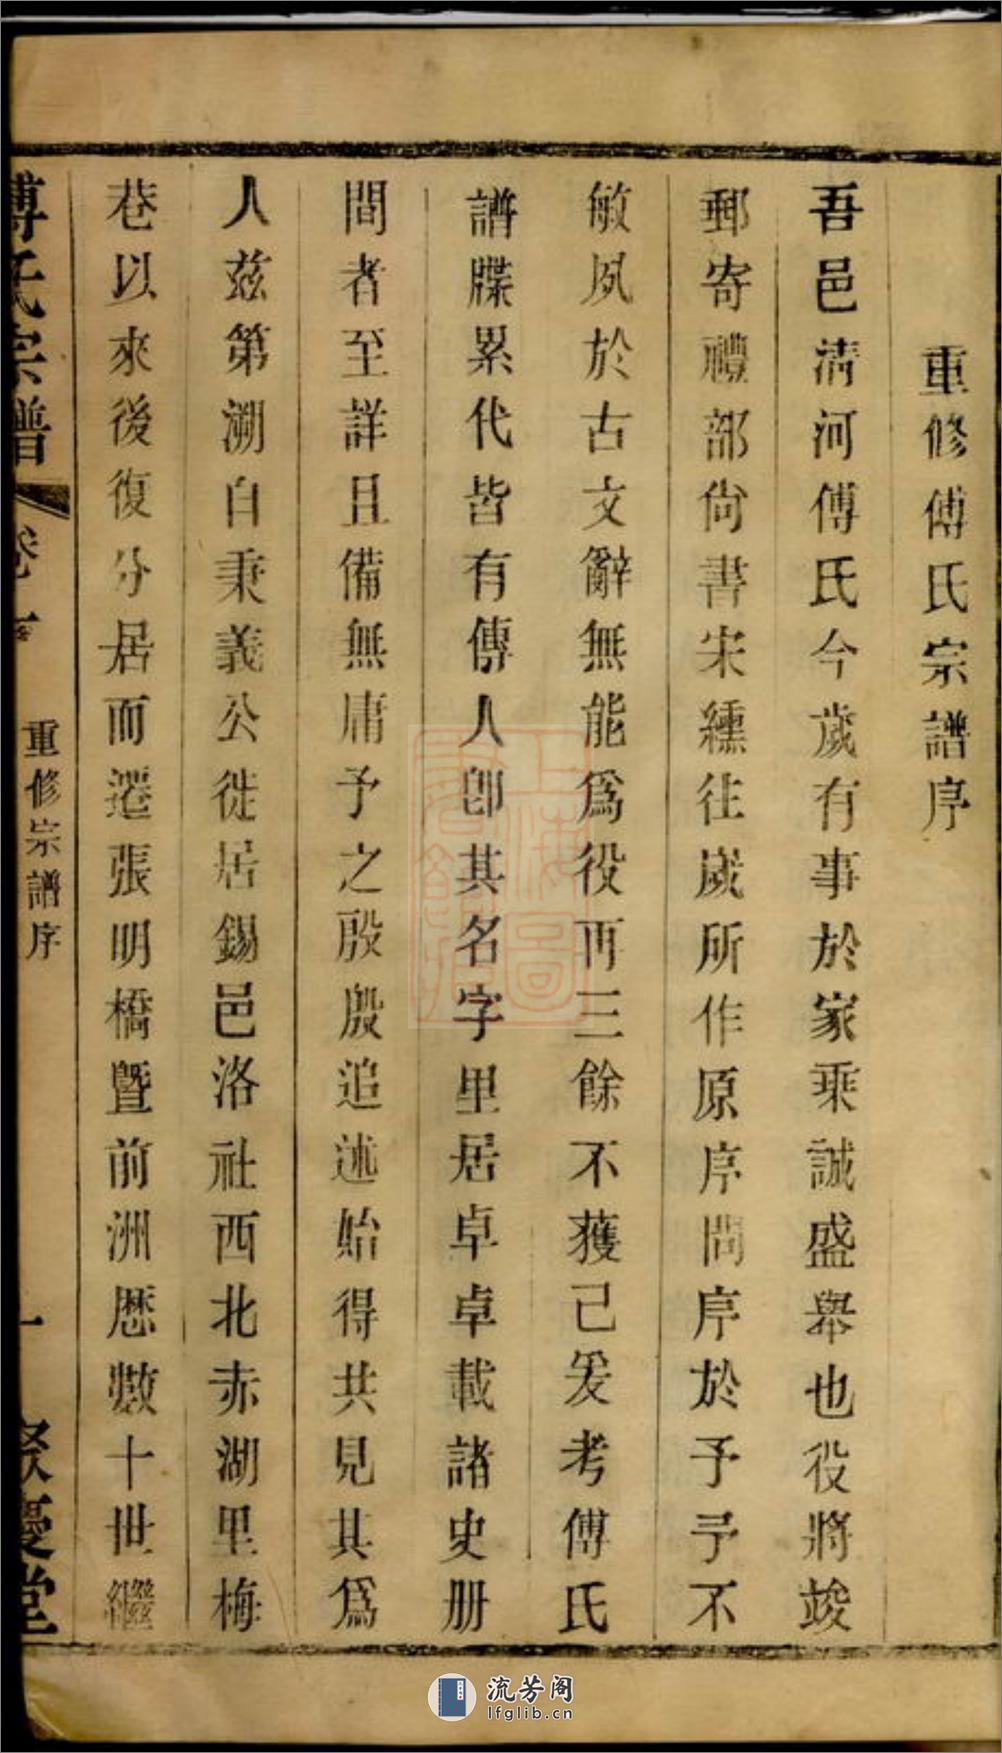 重修傅氏宗譜序
吾邑淸河傅氏今歲有事於家乘誠盛舉也役將竣
郵寄禮部尙書宋纁往歲所作原序問序於予予不
敏夙於古文辭無能爲役再三餘不獲已爰考傅氏
譜牒累代皆有傳人卽其名字里居卓卓載諸史册
間者至詳且備無庸予之殷殷追述始得共見其爲
人茲第溯自秉義公徙居錫邑洛社西北赤湖里梅
巷以來後復分居而遷張明橋曁前洲歷數十世繼
傅氏宗譜
卷一
重修宗譜序
一
聚慶堂
上海圖書館藏
流芳阁
lfglib.cn